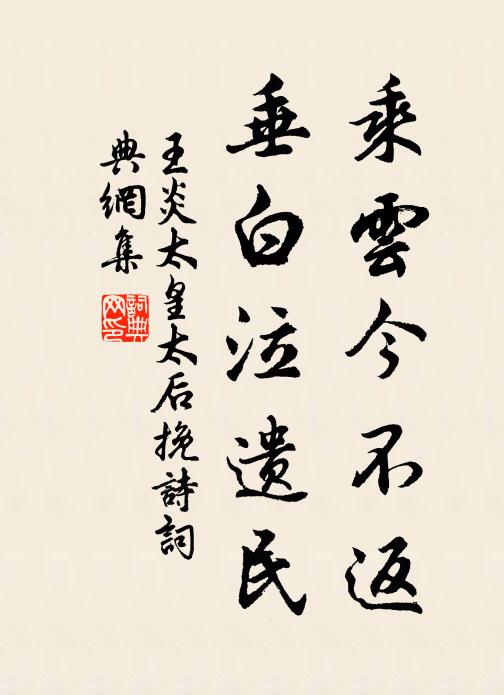 乘雲今不返
垂白泣遺民
王炎太皇太后挽詩詞
典網集
詞典
网印